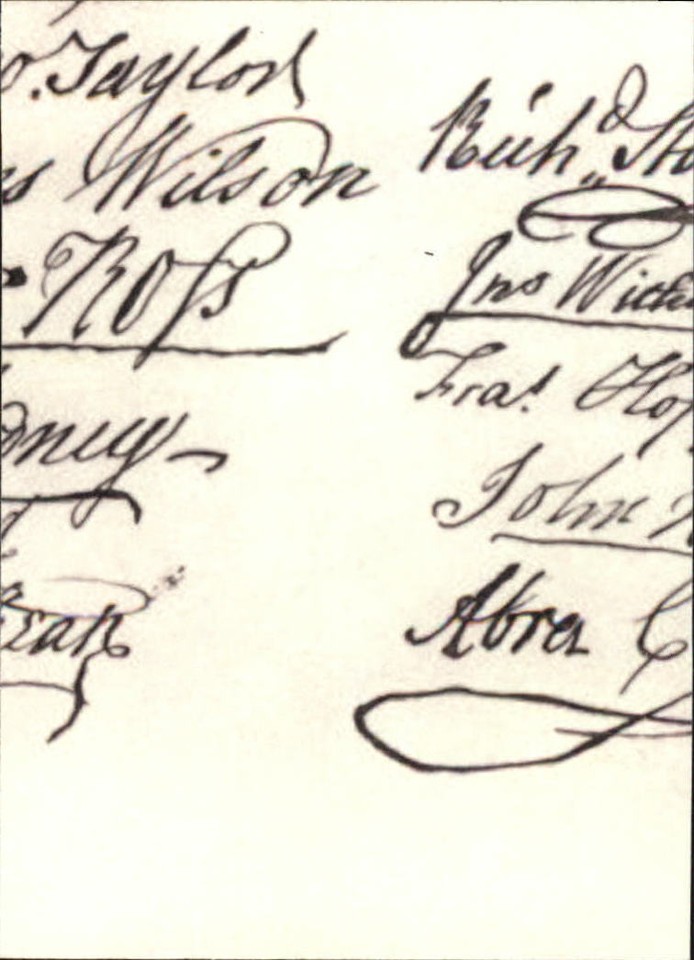 o. Taylor
s Wilson
Roſs
dney
Kean
Richd. Sto
Jno Withe
Fras. Hop
John H
Abra C